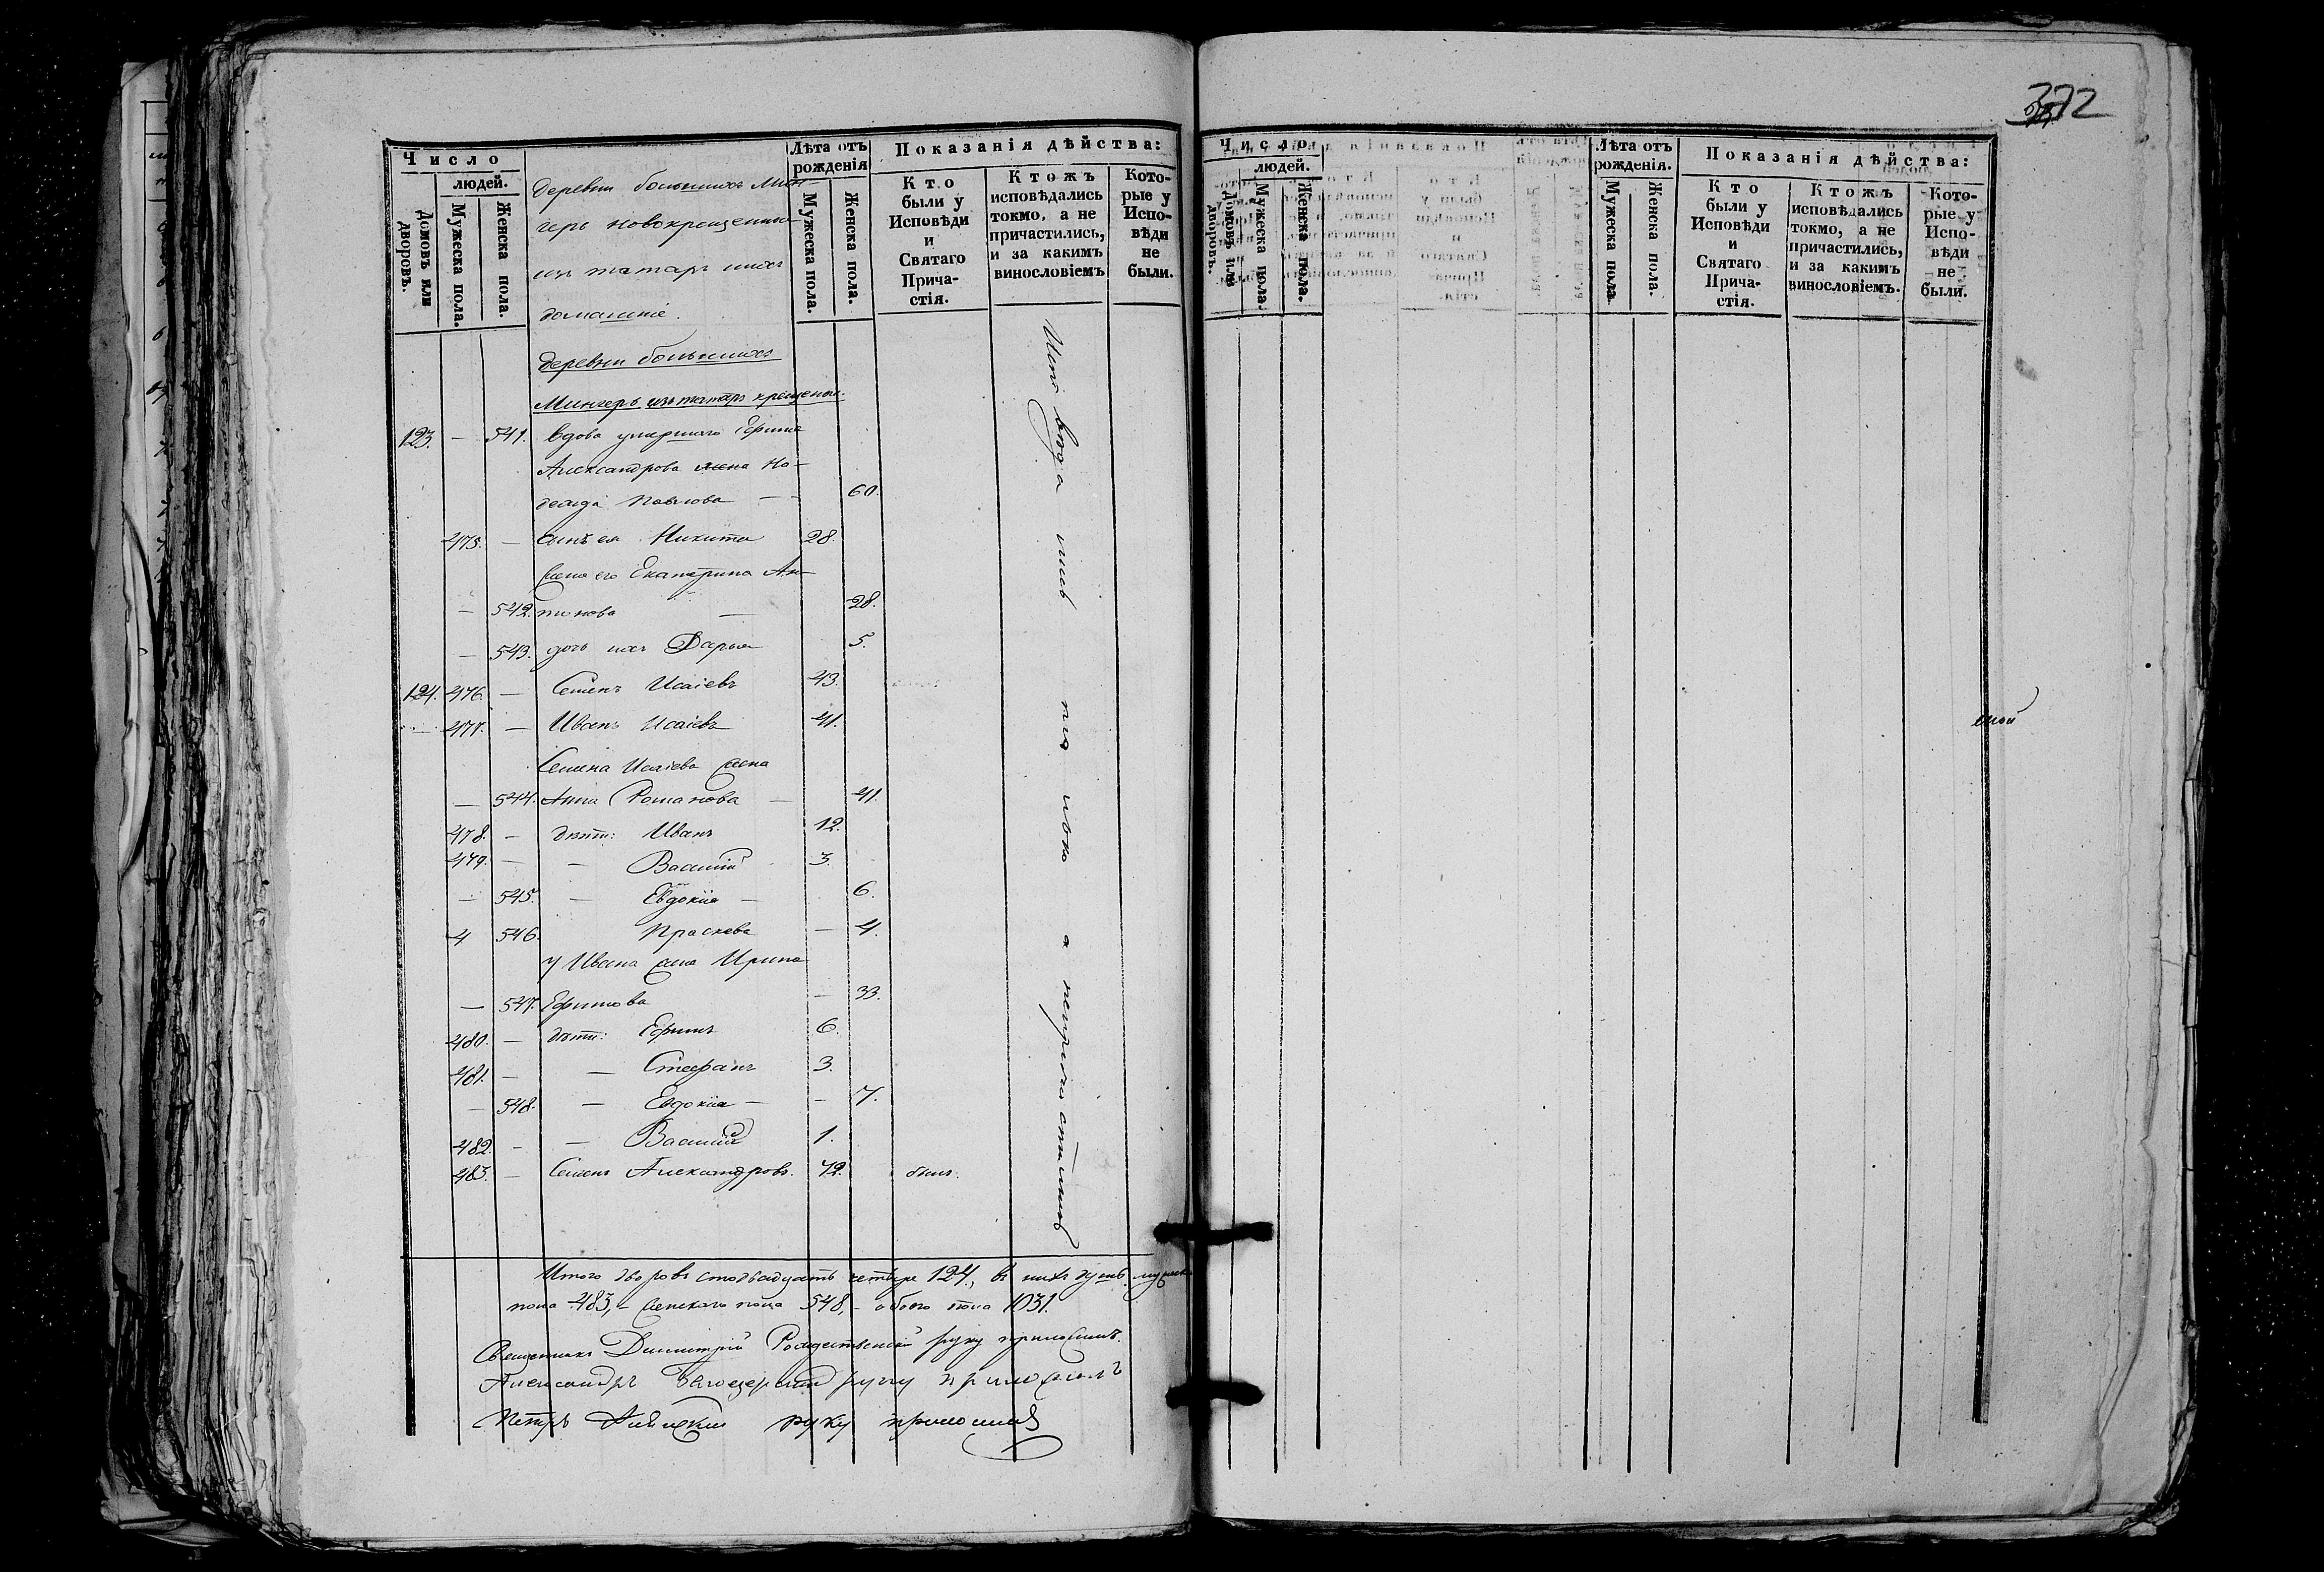 372
Число
людей.
Домовъ или дворовъ.
Мужеска пола.
Женска пола.
деревни большихъ Мин-
геръ новокрещенныя
изъ татаръ ихъ
домашніе.
Лѣта отъ рожденія
Мужеска пола.
Женска пола.
Показанія дѣйства:
Кто были у Исповѣди и Святаго Причастія.
Ктожъ исповѣдались токмо, а не причастились, и за какимъ винословіемъ
Которые у Исповѣди не были.
деревни большихъ
Мингеръ изъ татаръ крещеныя.
123. — 541. Вдова умершаго Ефима
Александрова жена На-
дежда Павлова — 60.
475. — сынъ ея Никита 28.
Жена его Екатерина Ан-
— 542. тонова — 28.
— 543. дочь ихъ Дарья 5.
124. 476. — Семенъ Исаіевъ 43.
— 477. — Иванъ Исаіевъ 41.
Семена Исаіева жена
— 544. Анна Романова — 41.
478. — дѣти: Иванъ 12.
479. — — Василій 3.
— 545. — Евдокія — 6.
4 546. Праскева — 4.
у Ивана жена Ирина
— 547. Ефимова — 33.
480. — дѣти: Ефимъ 6.
481. — — Стефанъ 3.
— 548. — Евдокія — — 7.
482. — — Василій 1.
483. — Семенъ Александровъ. 42. былъ.
а непричастились
Итого дворовъ стодвадцать четыре 124, въ нихъ душъ мужеска
пола 483, — женскаго пола 548, — обоего пола 1031.
Священникъ Димитрій Рождественскій руку приложилъ.
Александръ руку приложилъ
Петръ руку приложилъ
Число
людей.
Домовъ или дворовъ.
Мужеска пола.
Женска пола.
Лѣта отъ рожденія.
Мужеска пола.
Женска пола.
Показанія дѣйства:
Кто были у Исповѣди и Святаго Причастія.
Ктожъ исповѣдались токмо, а не причастились, и за какимъ винословіемъ.
Которые у Исповѣди не были.